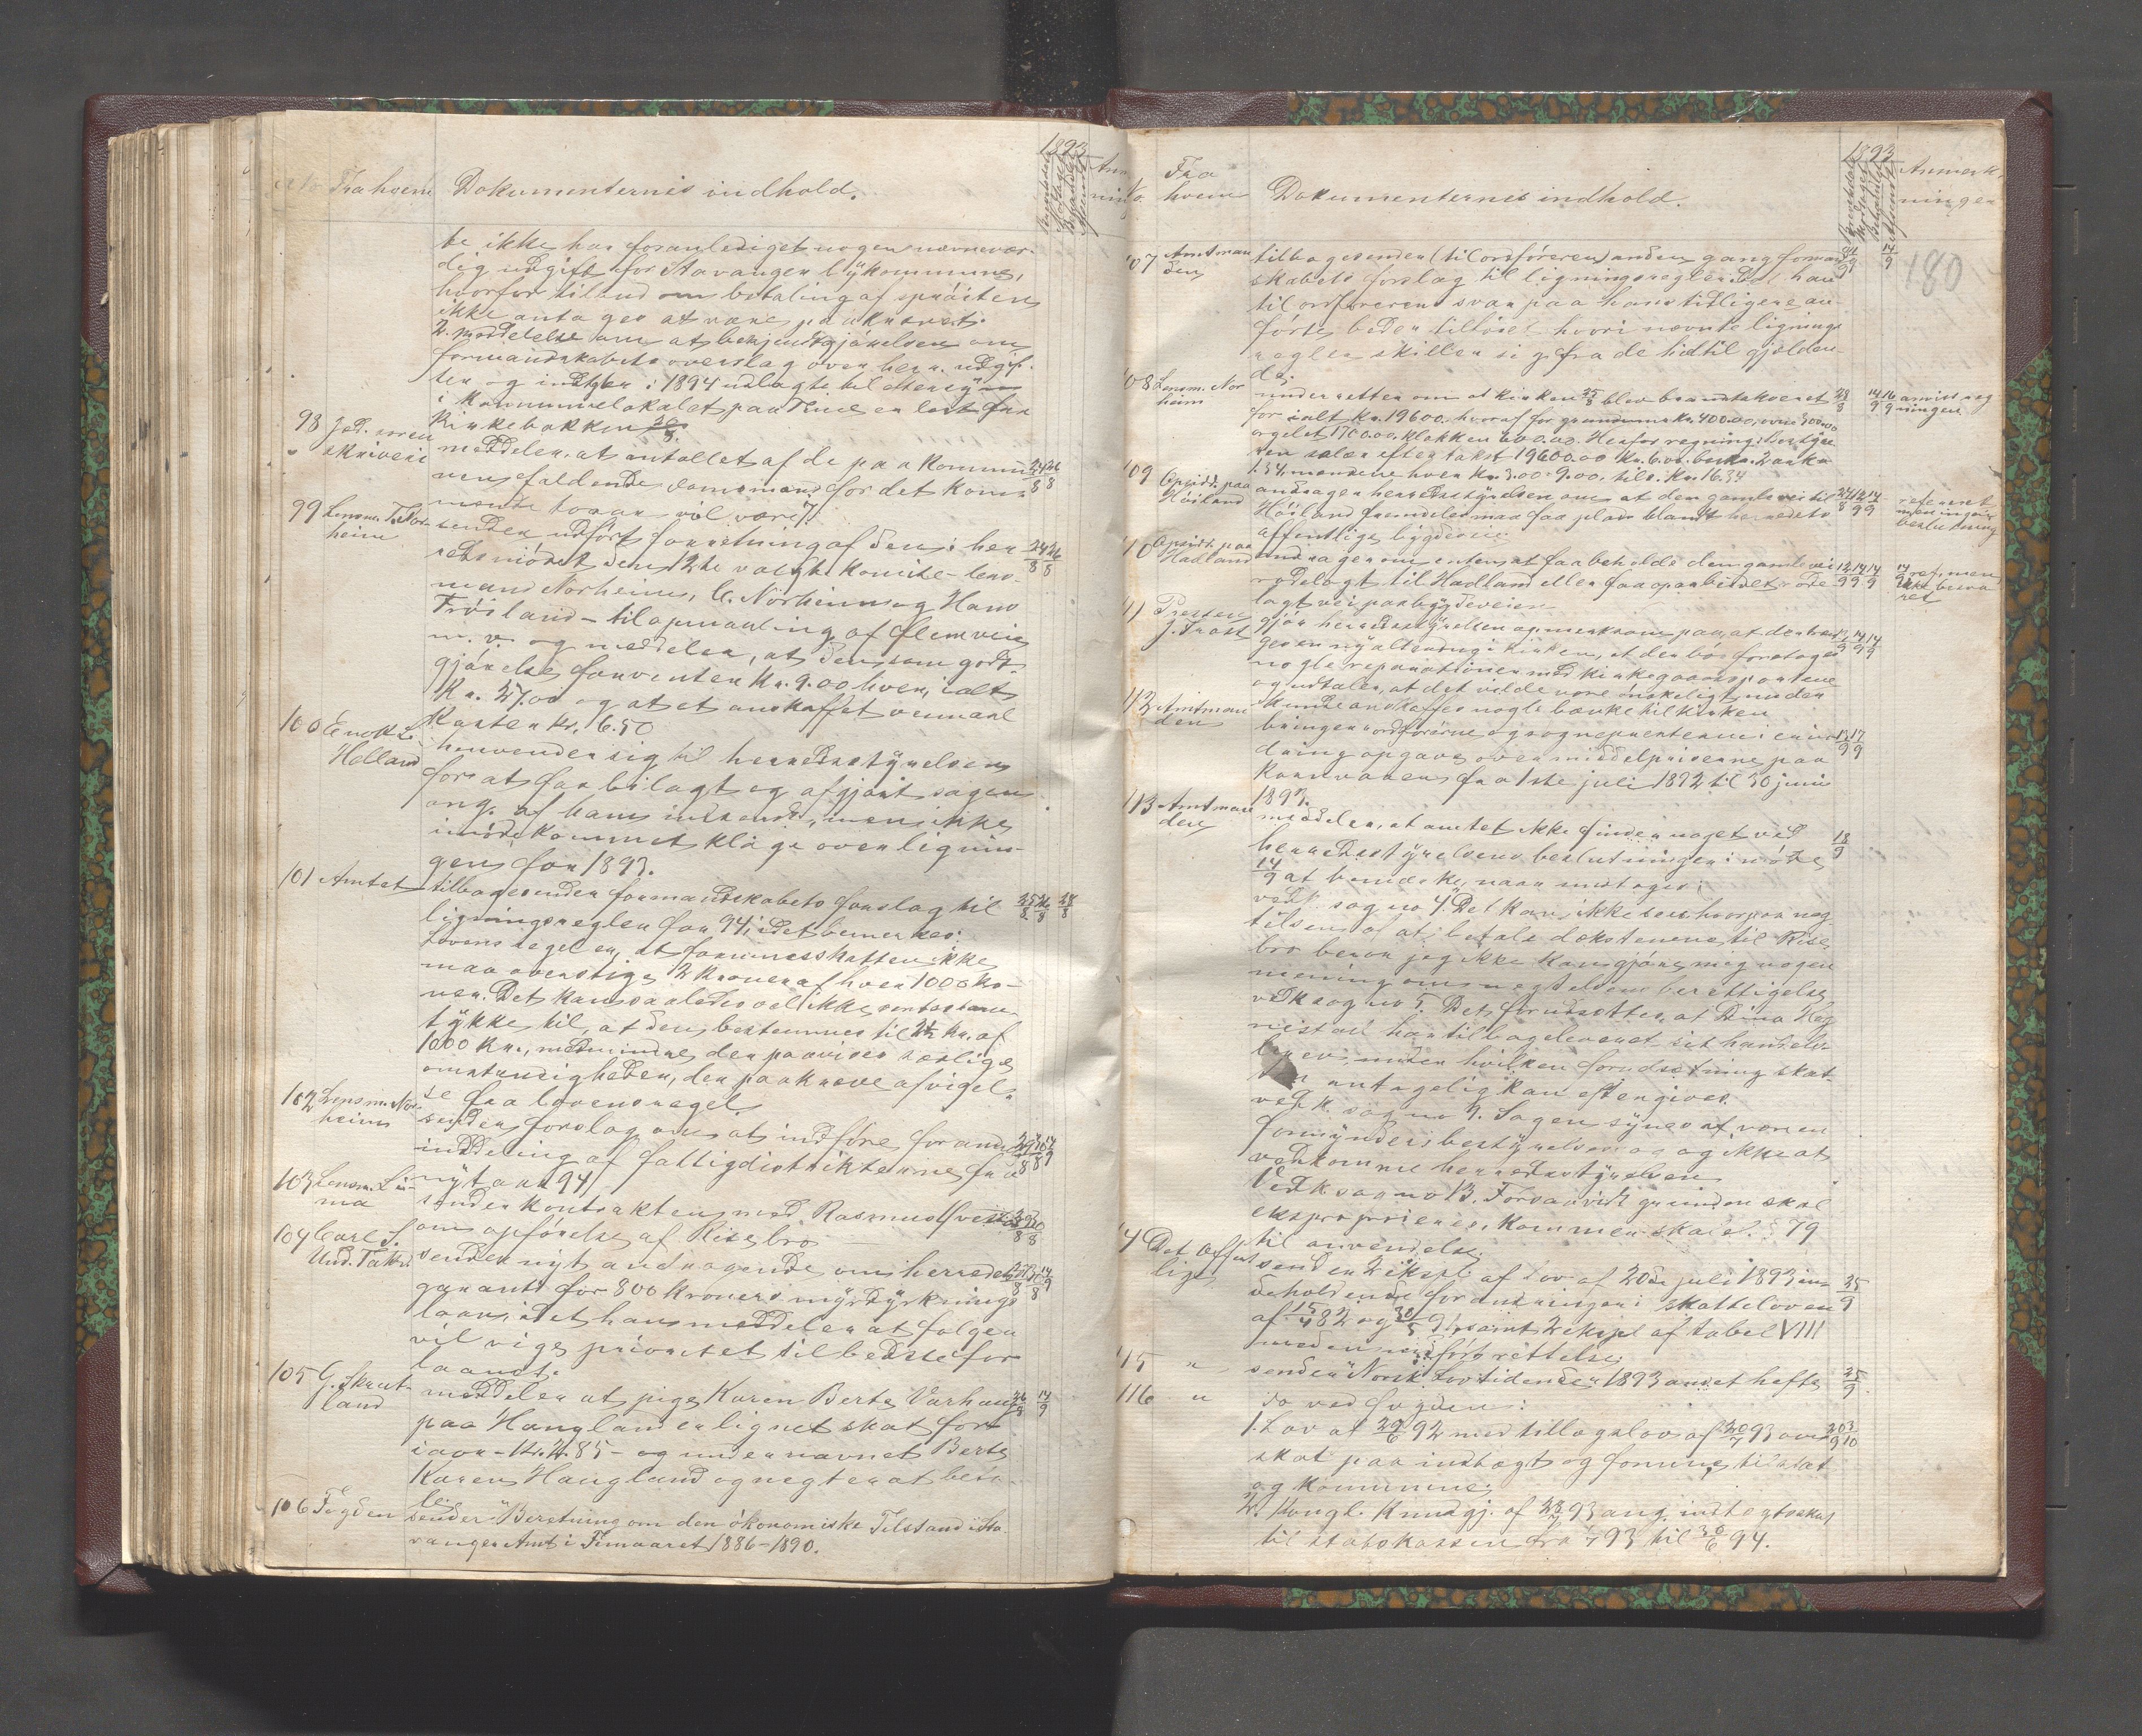 No Fra hvem Dokumenternes indhold. 1893
te ikke har foranlediget nogen nævnevær-
dig udgift for Stavanger bykommune,
hvorfor tilbud om betaling af sprøiten
ikke antages at være paakrævet.
2. Meddelelse om at bekjendtgjørelsen om
formandskabets overslag over herr. udgif-
ter og indtgter i 1894 udlagte til eftersyn
i kommunelokalet paa Time er læst fra
Kirkebakken
98 Sod. sorenskriveri meddeler, at antallet af de paa kommu-
nen faldende domsmænd for det kom-
mende toaar vil være 7.
99 Lensm. T. Norheim sender udført forretning af den i her-
redsmødet den 12te valgte komite - lens-
mand Norheim, C. Norheim og Hans
Frøiland - til opmaaling af Slemveie
m. v. og meddeler, at den som godt-
gjørelse forventer Kr. 9.00 hver, ialt
Kr. 27.00 og at et anskaffet
koster kr. 6.50
100 Enok L. Helland henvender sig til herredsstyrelsen
for at faa bilagt og afgjort sagen
ang. af ham indsendt, men ikke
imødekommet klage over lignin-
gen for 1893.
101 Amtet tilbagesender formandskabets forslag til
ligningsregler for 94, idet bemerkes:
Lovens regel er, at formuesskatten ikke
maa overstige 2 kroner af hver 1000 kro-
ner. Det kan saaledes vel ikke ventes sam-
tykke til, at den bestemmes til 2½ kr. af
1000 Kr., medmindre der paavises særlige
omstændigheder, der paakræve afvigel-
se fra lovens regel.
102 Lensm. Norheim sender forslag om at indføre forandr.
inddeling af fattigdistrikterne fra
nytaar 94
103 Lensm. Lima sender kontrakten med Rasmus
om opførelse af Rise bro
104 Carl S. Und. Taksd. sender nyt andragende om herredets
garanti for 800 kroners myrdyrknings
laan, idet han meddeler at følgen
vil vige prioritet til bedste for
laanet.
105 G. Skrut-land meddeler at pige Karen Berte Varhaug
paa Haugland er lignet skat for
iaar - Kr. 2.85 - og under navnet Berte
Karen Haugland og negter at beta-
le.
106 Fogden sender "Beretning om den økonomiske Tilstand i Sta-
vanger Amt i Femaaret 1886-1890.
No Fra hvem Dokumenternes indhold. 1893 Anmerkninger
180
107 Amtmanden tilbagesender (til ordføreren) anden gang forman
skabets forslag til ligningsregler. Det har
til ordførerens svar paa hans tidligere an-
førte, beder tilføiet hvori nævnte lignings
regler skiller sig fra de hidtil gjelden-
de.
108 Lensm. Norheim underretter om at kirken 25/8 blev brandtakseret
for ialt kr. 19600. hvoraf for grundmur kr. 400.00, ovne 300.00
orgelet 1700.00. klokken 600.00. Herfor regning: Bestyre
ren salær efter takst 19600.00 Kr. 6.00.
1.34. mændene hver Kr. 3.00 = 9.00. tils. Kr. 16.34
109 Opsidd. paa Høiland andrager herredsstyrelsen om at den gamle vei til
Høiland fremdeles maa faa plads blandt herredets
offentlige bygdeveie
110 Opsidd. paa Hadland andrager om enten at faa beholde den gamle vei
rodelagt til Hadland eller faa oparbeidet rode
lagt vei paa bygdeveien
111 Presten J. Trast gjør herredsstyrelsen opmerksom paa, at der træn
ges en ny alterdug i kirken, at der bør foretages
nogle reparationer med kirkegaardsportene
og udtaler, at det vilde være ønskeligt om der
kunde anskaffes nogle bænke til kirken
112 Amtmanden bringer ordførerne og sogneprestene i erin
dring opgaver over middelpriserne paa
kornvarer fra 1ste juli 1892 til 30 juni
1893.
113 Amtmanden meddeler, at amtet ikke finder noget ved
herredsstyrelsens beslutninger i møde
14/9 at bemerke, naar undtages:
vedk. sag no 4. Det kan ikke sees hvorpaa neg
telsen af at betale dækstenene til Rise
bro beror jeg ikke kan gjøre mig nogen
mening om negtelsens berettigelse
vedk sag no 5. Det forudsættes, at Dina Hog
nestad har tilbageleveret sit handels
brev, under hvilken forudsætning skat-
ten antagelig kan eftergives.
vedk. sag no 7. Sagen synes at være en
formynderibestyrelses sag og ikke at
vedkomme herredsstyrelsen
Vedk. sag no 13. Forsaavidt grunden skal
eksproprieres, kommer skatel. § 79
til anvendelse.
114 Det Offentlige sender 2 ekspl. af lov af 20de juli 1893 in-
deholdende forandringer i skatteloven
af 15/4 82 og 30/5 91, samt 2 ekspl af tabel VIII
med en indført rettelse.
115 " sender "Norsk Lovtidende" 1893 andet hefte
116 " do ved fogden:
1. Lov af 29/6 92 med tillægslov af 20/7 93 om
skat paa indtægt og formue til stat
og kommune;
2. Kongl. Kundgj. af 28/7 93 ang. indtægtsskat
til statskassen fra 1/7 93 til 30/6 94.